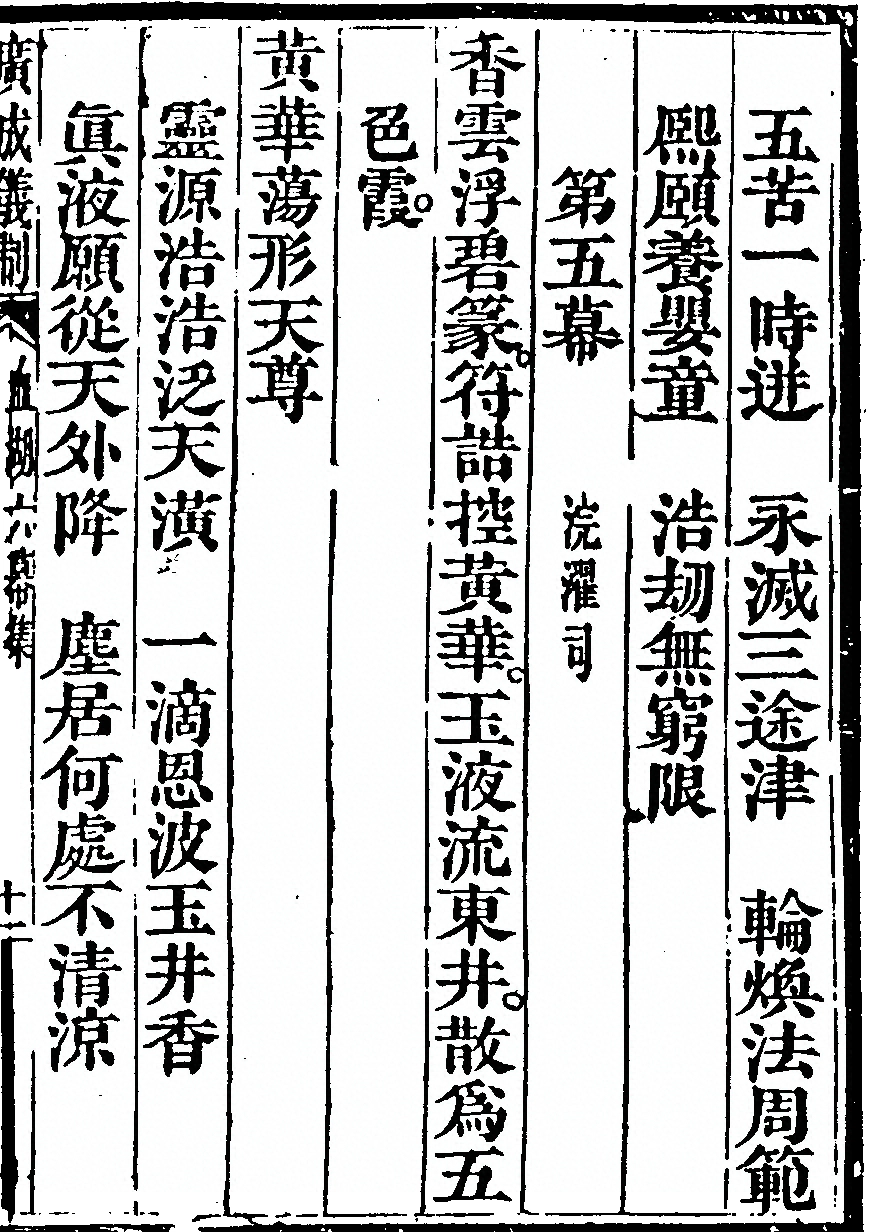 五苦一時迸　永滅三途津　輪煥法周範
熙頤養嬰童　浩劫無窮限
第五幕　浣濯司
香雲浮碧篆。符誥控黃華。玉液流東井。散爲五
色霞。
黃華蕩形天尊
靈源浩浩泛天潢　一滴恩波玉井香
眞液願從天外降　塵居何處不清涼
廣成儀制　血湖六幕集　十一